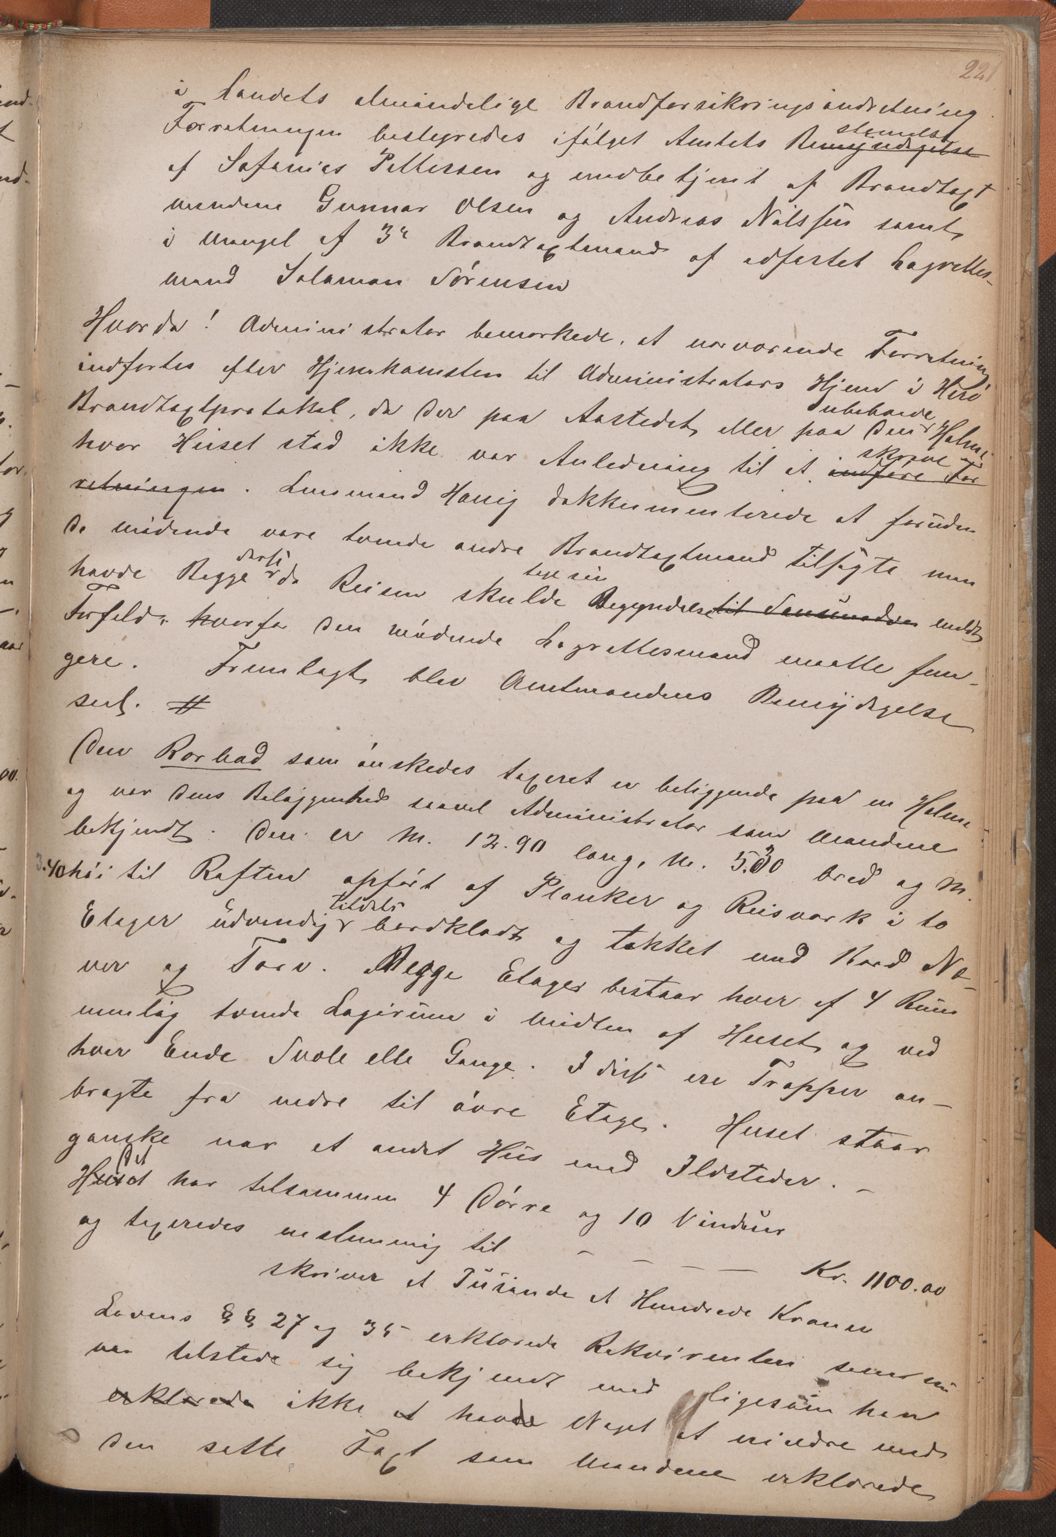 221
i Landets almindelige Brandforsikringsindretning.
Forretningen bestyredes ifølget Amtets Bemyndigelse stemelse
af Sefanias Pettersen og medbetjent af Brandtaxt
mendene Gunnar Olsen og Andreas Nilssen samt
i Mangel af 3die Brandtaxtmand af edfæstet Lagrettes-
mand Salamon Sørensen
Hvorda! Administrator bemærkede, at nærværende Forretning
indførtes efter Hjemkomsten til Administrators Hjem i Herø
Brandtaxtprotokol, da der paa Aastedet eller paa den ubeboede Holme
hvor Huset stod ikke var Anledning til at indføre For skrive
retningen. Lensmand Havig dokkumenterede at foruden
de mødende vare tvende andre Brandtaxtmænd tilsagte men
havde Begge, da Reisen skulde begyndes til meldt
Forfald, hvorfor den mødende Lagrettesmand maatte fun-
gere. Fremlagt blev Amtmandens Bemydigelse
saal. #
Den Rorbod som ønskedes taxeret er beliggende paa en Holme
og var dens Beliggenhed saavel Administrator som Mændene
bekjendt. Den er M. 12.90 lang, M. 5.30 bred og M.
3.40 høi til Raften opført af Planker og Reisværk i to
Etager udvendig tildels bordklædt og tækket med Bord Næ-
ver og Torv. Begge Etager bestaar hver af 4 Rum
nemlig tvende Logirum i Midten af Huset og ved
hver Ende Svole elle Gange. I disse ere Trapper an-
bragte fra nedre til øvre Etage. Huset staar
ganske nær et andet Hus med Ildsteder. –
Huset Det har tilsammen 4 Dørre og 10 Vinduer
og taxeredes enstemmig til – – – – Kr. 1100.00
skriver et Tusinde et Hundrede Kroner
Lovens §§ 27 og 35 erklærede Rekvirenten som
var tilstede sig bekjendt med ligesom han
erklærede ikke at havde Noget at erindre mod
den satte Taxt som Mændene erklærede